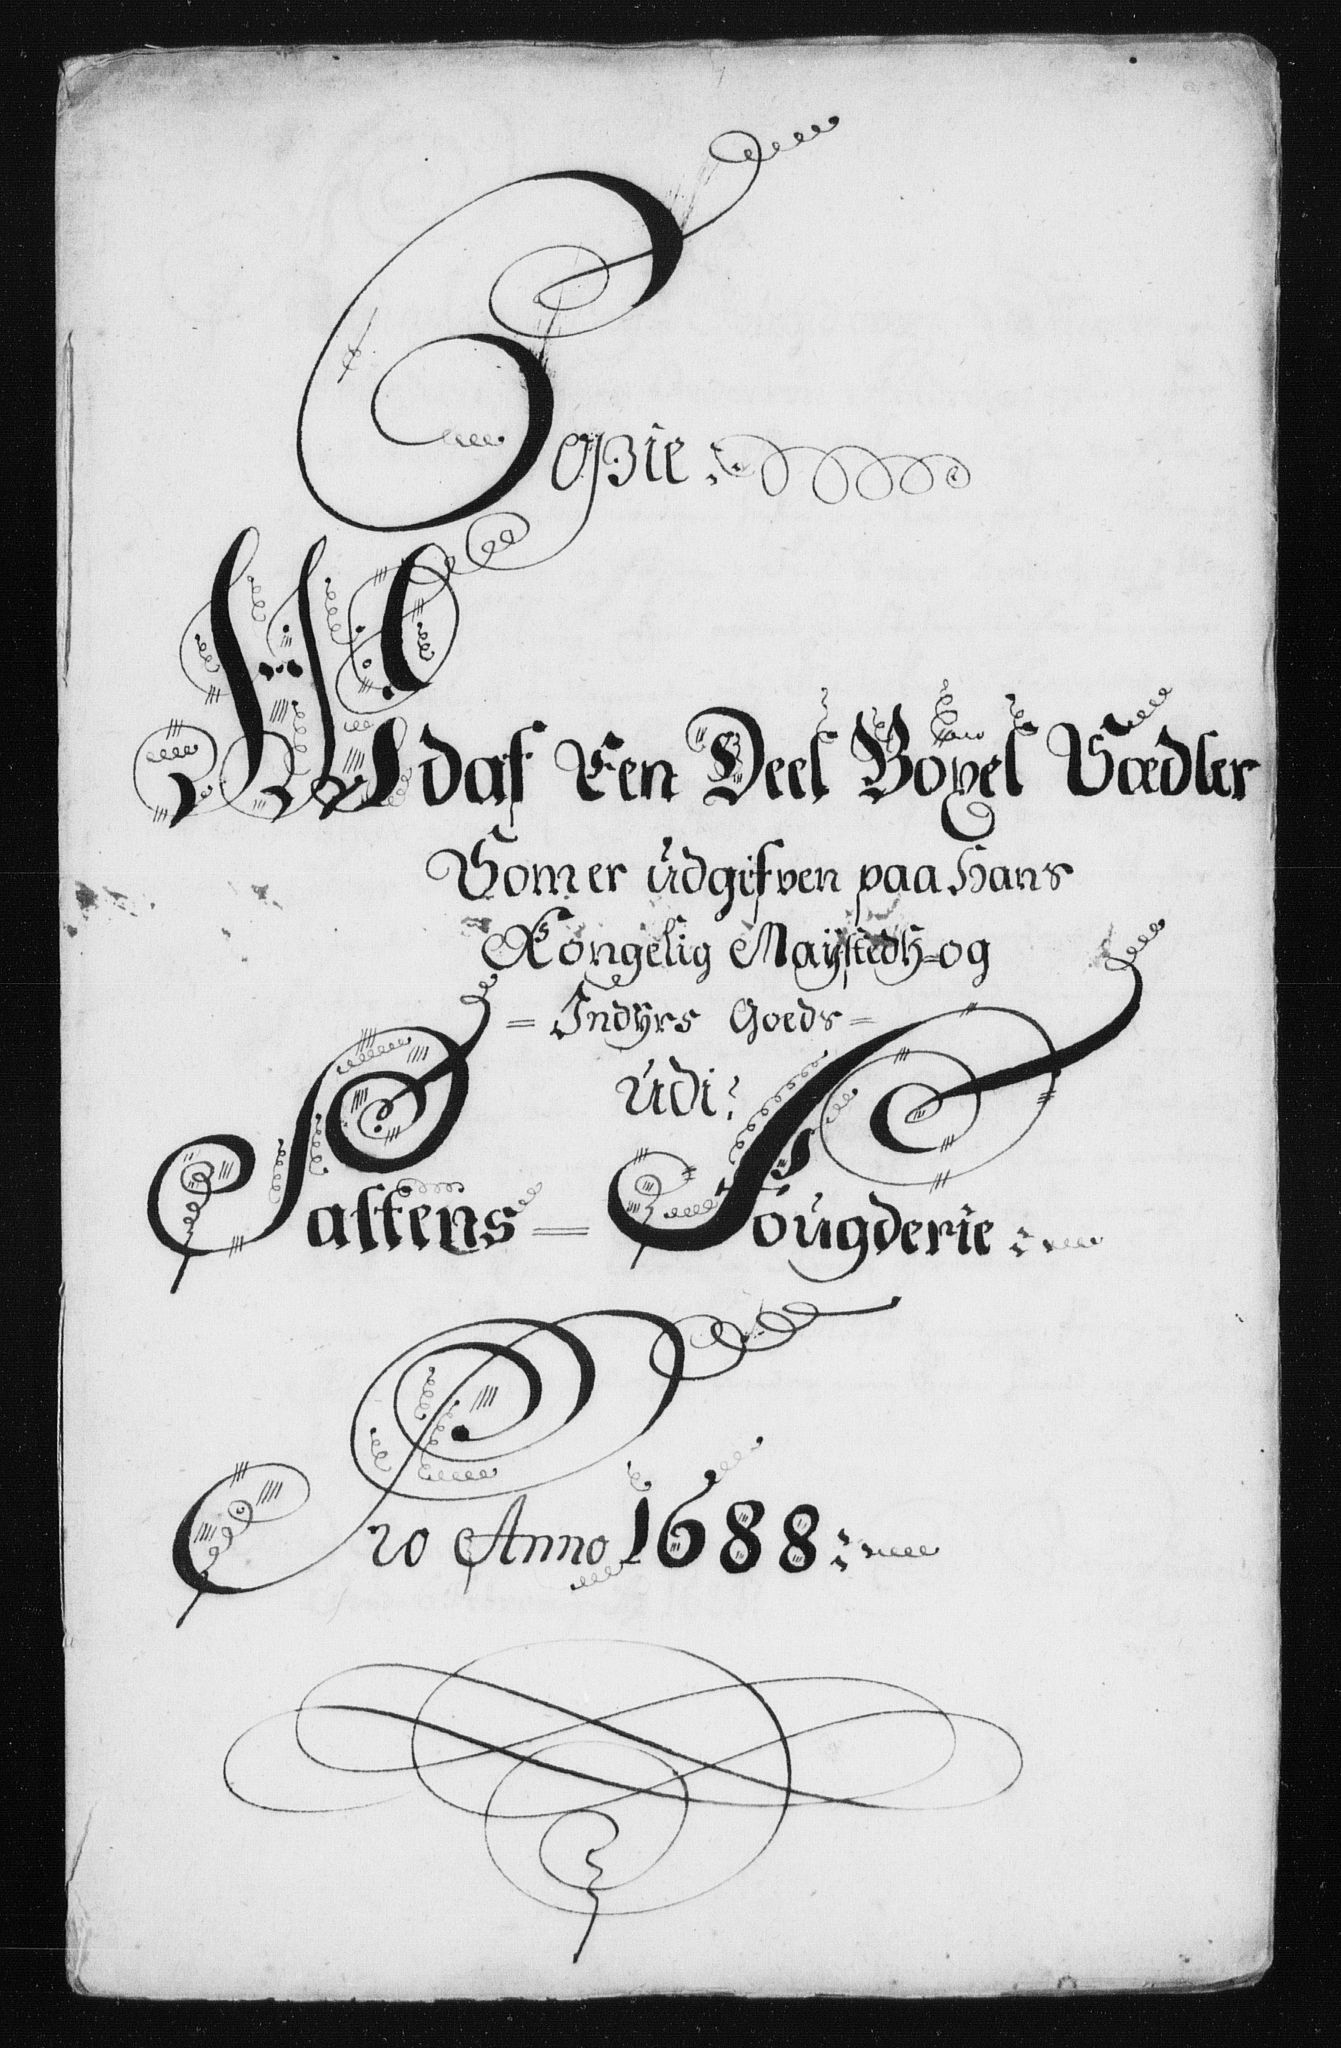 Copie
Udaf Een Deel Boxel Sædler
Som er udgifven paa Hans
Kongelig Mayștedh=og
= Indhrs Goeds =
udi
Saltens= Fougderie
Pro Anno 1688